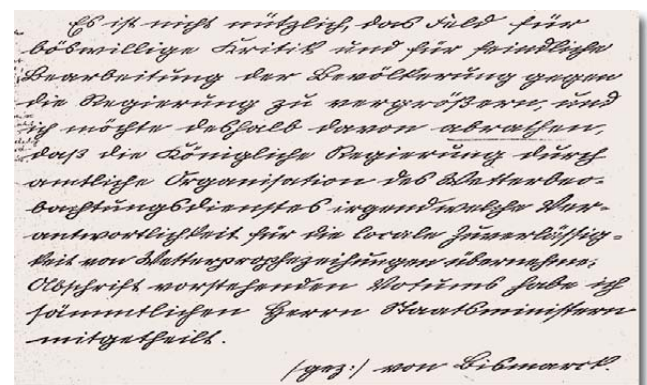 Es ist nicht nützlich, das Feld für
böswillige Kritik und für feindliche
Bearbeitung der Bevölkerung gegen
die Regierung zu vergrößern, und
ich möchte deshalb davon abrathen,
daß die Königliche Regierung durch
amtliche Organisation des Wetterbeo-
bachtungsdienstes irgendwelche Ver-
antwortlichkeit für die locale Zuverlässig-
keit von Wetterprophezeihungen übernehme.
Abschrift vorstehenden Votums habe ich
sämmtlichen Herrn Staatsministern
mitgetheilt.
/gez:/ von Bismarck.